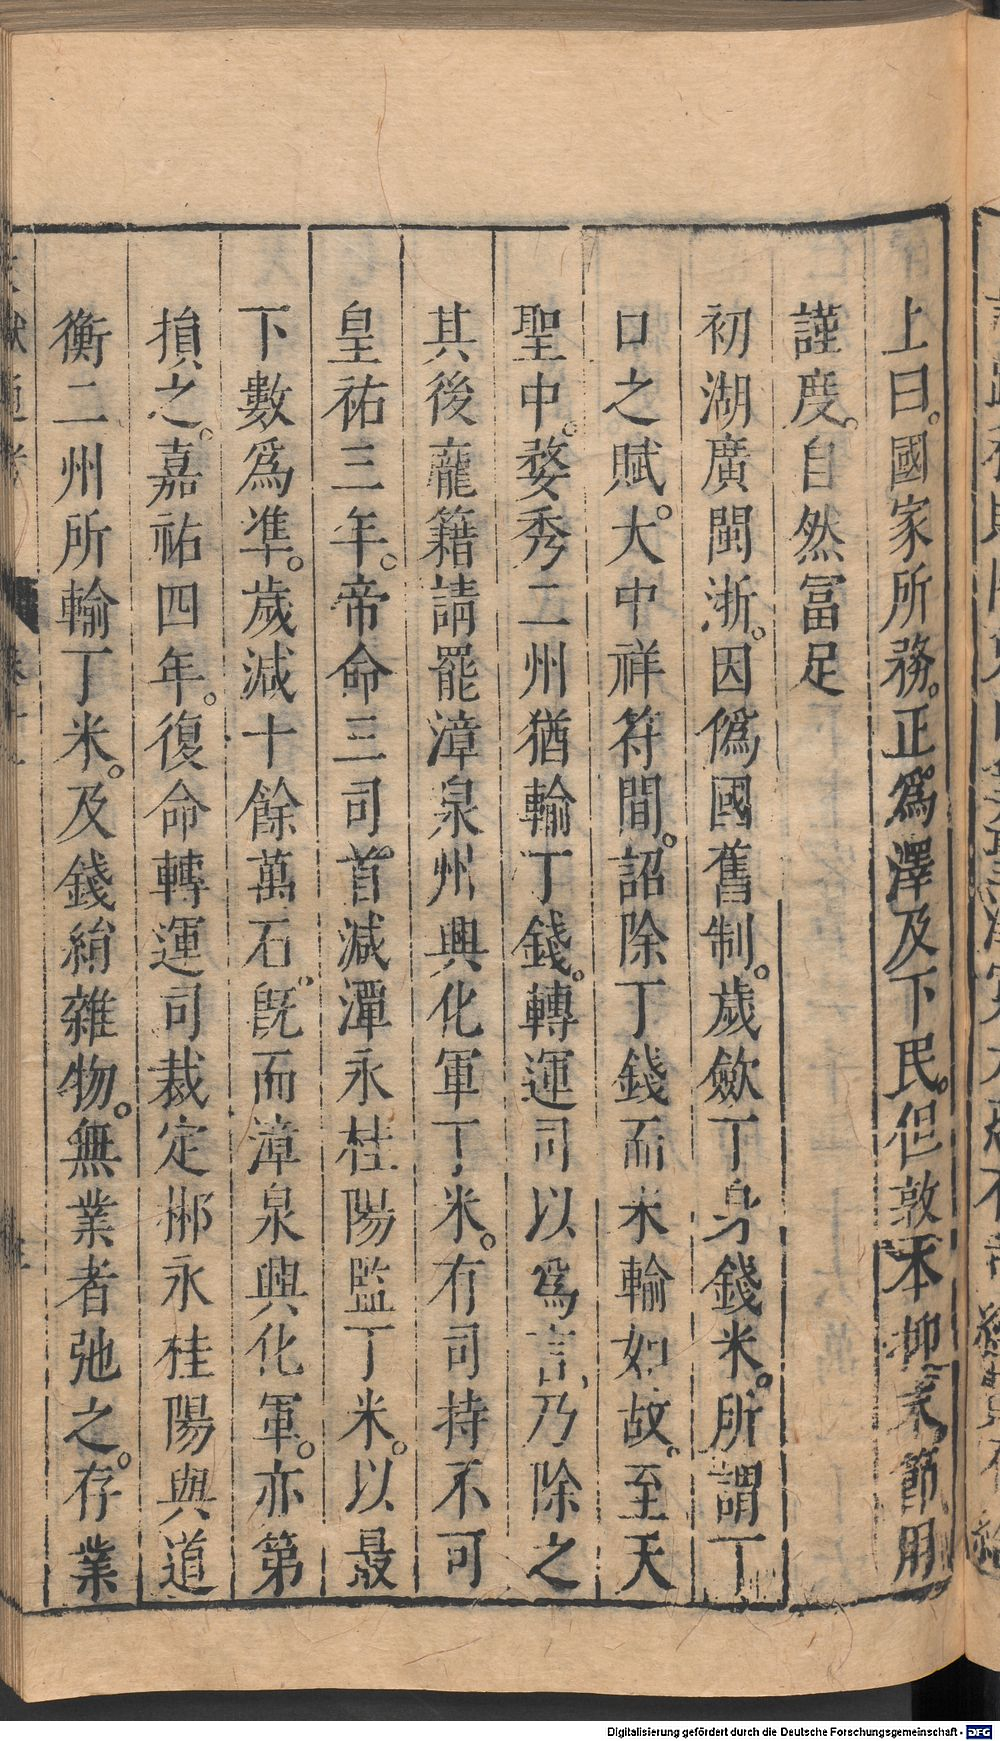 上曰。國家所務。正爲澤及下民。但敦本抑末節用
謹度。自然冨足
初湖廣閩浙。因僞國舊制。歲斂丁身錢米。所謂丁
口之賦。大中祥符間。詔除丁錢而米輸如故。至天
聖中。婺秀二州猶輸丁錢。轉運司以爲言。乃除之
其後龐籍請罷漳泉州興化軍丁米。有司持不可
皇祐三年。帝命三司。首減潭永桂陽監丁米。以最
下數爲凖。歲減十餘萬石。旣而漳泉興化軍。亦第
損之。嘉祐四年。復命轉運司裁定郴永桂陽與道
衡二州所輸丁米。及錢絹雜物。無業者弛之。存業
Digitalisierung gefördert durch die Deutsche Forschungsgemeinschaft - DFG